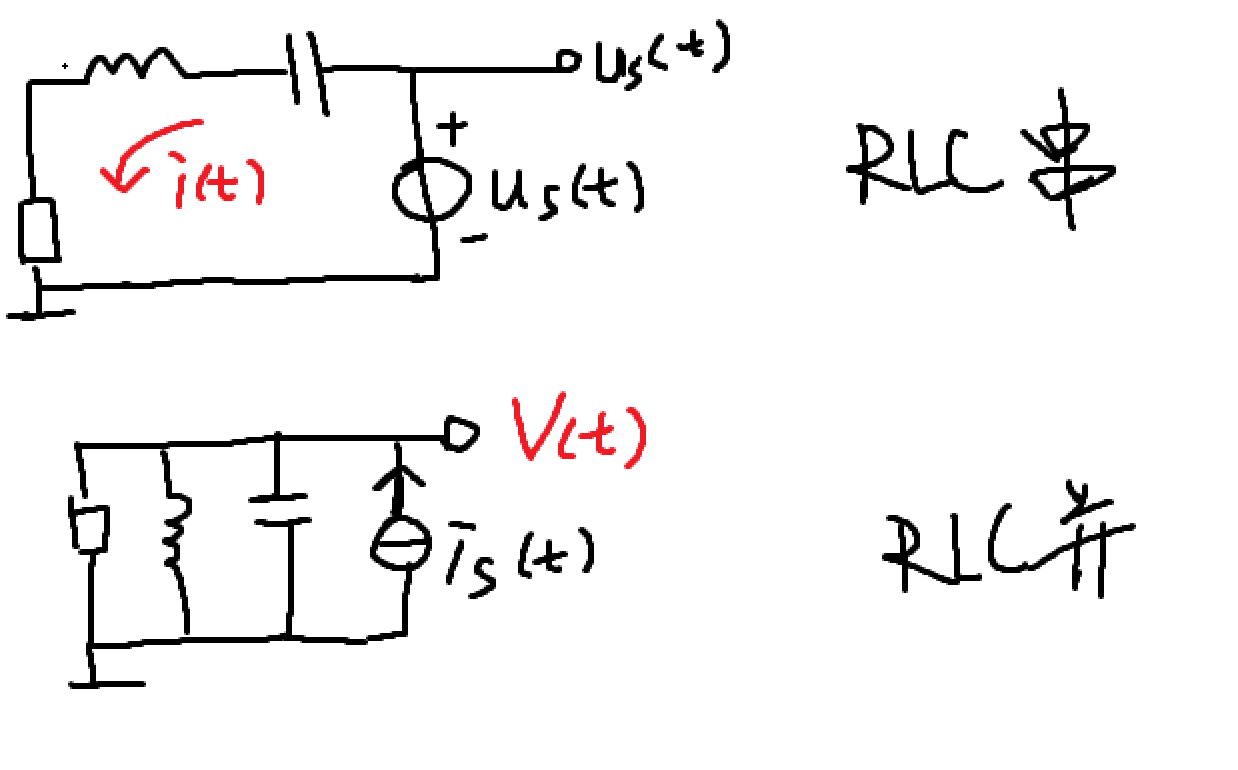 u_s(t)
+
i(t)
u_s(t)
-
RLC串
V(t)
i_s(t)
RLC并